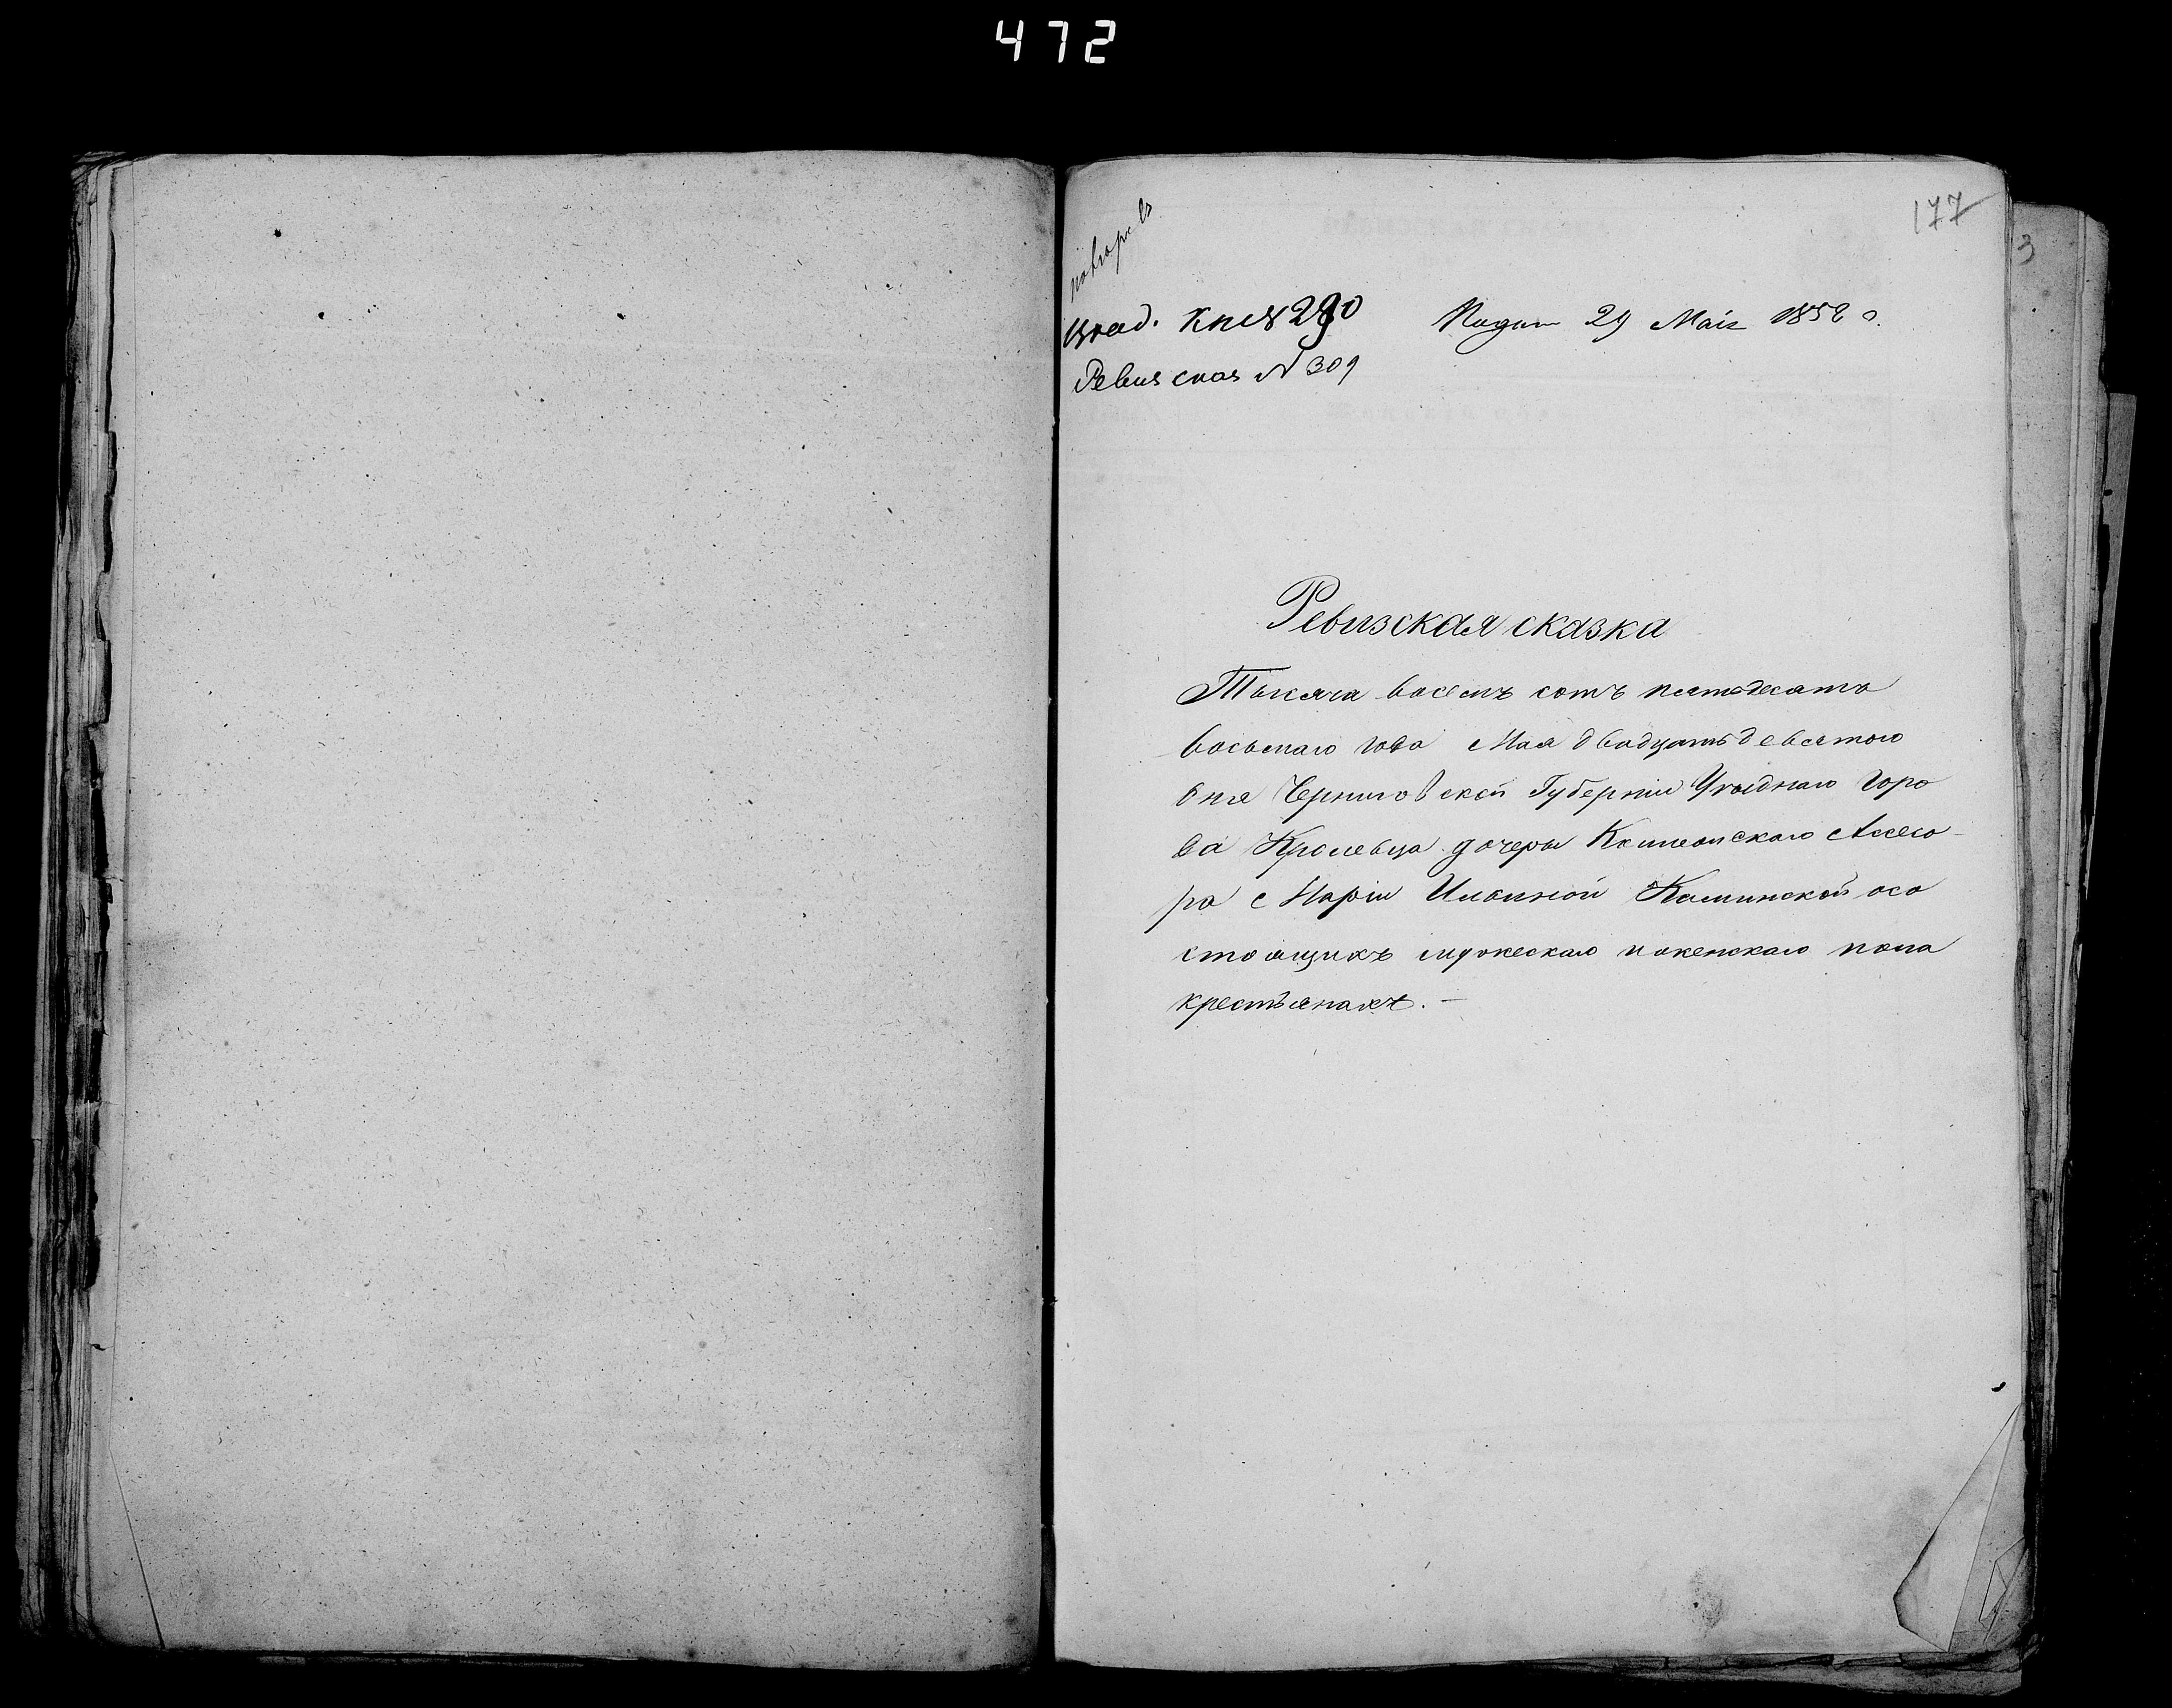 472
177
3
290
29 Мая 1858 г.
№ 309
Ревизская сказка
Тысяча восемь сотъ пятьдесятъ
восьмаго года Мая двадцать девятого
дня Черниговской Губерніи Уѣзднаго горо
да Кролевца дочеры Колежскаго Ассесо-
ра Маріи Ильиной Каминской, осо
стоящихъ мужескаго и женскаго пола
крестьянахъ. —